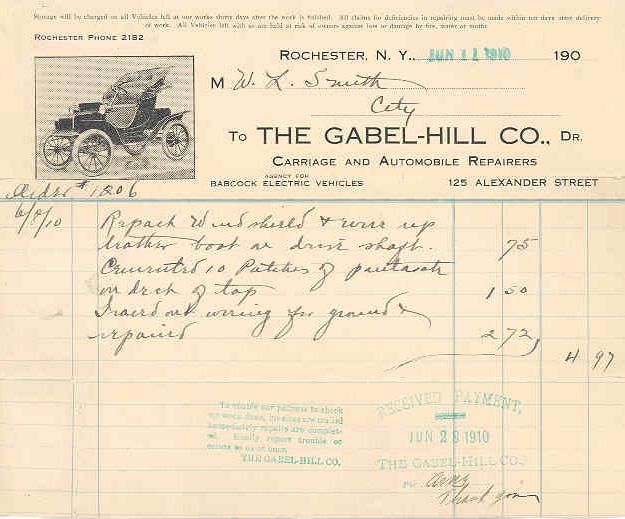 Storage will be charged on all Vehicles left at our works thirty days after the work is finished. All claims for deficiencies in repairing must be made within ten days after delivery
of work. All Vehicles left with us are held at risk of owners against loss or damage by fire, water or mobs
ROCHESTER PHONE 2182
ROCHESTER, N. Y., JUN 11 1910 190
M W. L. Smith
City
To THE GABEL-HILL CO., DR.
CARRIAGE AND AUTOMOBILE REPAIRERS
AGENCY FOR
BABCOCK ELECTRIC VEHICLES 125 ALEXANDER STREET
Order # 1206
6/8/10 Repack Windshield & wire up
leather boot on drive shaft. 75
Cemented 10 Patches of pantasote
on deck of top 1 50
Traced out wiring for ground &
repaired 2 72
4 97
To enable our patrons to check
up work done, invoices are mailed
immediately repairs are complet-
ed. Kindly report trouble or
errors to us at once.
THE GABEL-HILL CO.
RECEIVED PAYMENT,
JUN 28 1910
THE GABEL-HILL CO.
Per
Thank you